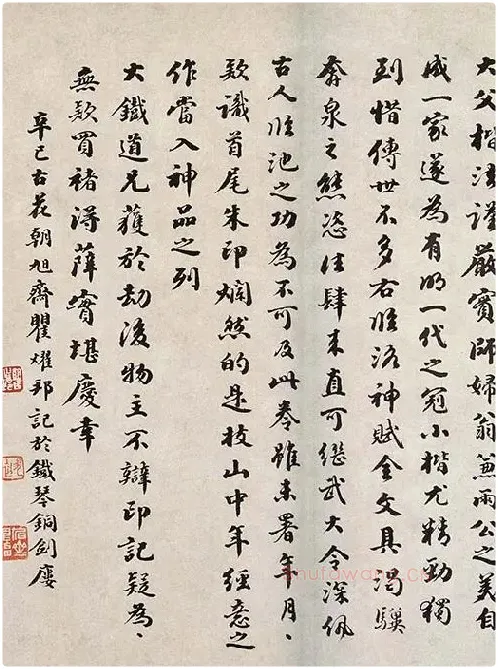 大父楷法謹嚴實師婦翁兼兩公之美自
成一家遂為有明一代之冠小楷尤精勁獨
到惜傳世不多右臨洛神賦全文具渴驥
奔泉之態恣往肆来直可繼武大令深佩
古人臨池之功為不可及此卷雖未署年月、
款識首尾朱印爛然的是枝山中年經意之
作當入神品之列
大鐵道兄獲於劫後物主不辯印記疑為、
無款買褚得薛實堪慶幸
辛巳古花朝旭齋瞿燿邦記於鐵琴銅劍廔